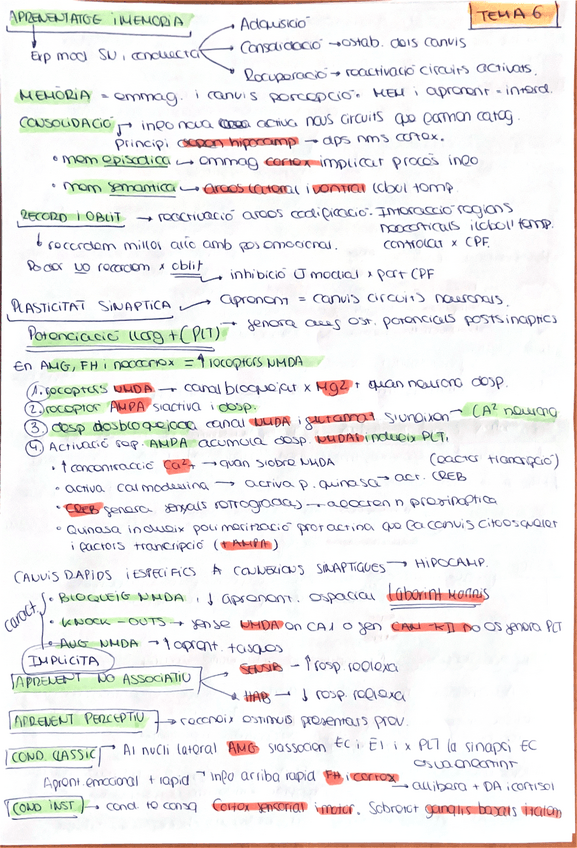 APRENENTATGE i MEMORIA
TEMA 6
→ Adquisició
Exp modi SN i conducta → Consolidació → estab. dels canvis
→ Recuperació → reactivació circuits activats.
MEMÒRIA = emmag. i canvis percepció. MEM i aprenent = interrel.
CONSOLIDACIÓ → info nova activa nous circuits que formen categ.
Principi depen hipocamp → dps nms cortex.
• mem episodica → emmag cortex implicat procés info
• mem semantica → arees lateral i ventral lobul temp
RECORD I OBLIT → reactivació arees codificació. Interacció regions
neocorticals i lobul temp.
↓ recordem millor allò amb pes emocional. controlat x CPF.
Poder no recordem x oblit → inhibició T medial x part CPF
PLASTICITAT SINAPTICA → aprenent = canvis circuits neuronals.
Potenciació llarg t (PLT) → genera arees est. potencials postsinaptics
En AMG, FH i neocortex = ↑ receptors NMDA
1. receptors NMDA → canal bloquejat x Mg2+ quan neurona desp.
2. receptor AMPA s'activa i desp.
3. desp desbloqueja canal NMDA i glutamat s'uneixen → CA2+ neurona
4. Activació rep. AMPA acumula desp. NMDAS indueix PLT.
• ↑ concentració Ca2+ → quan s'obre NMDA (factor trancripció)
• activa calmodulina → activa p. quinasa → act. CREB
• CREB genera senyals retrogrades → afecten n presinaptica
• Quinasa indueix polimerització prot actina que fa canvis citoesquelet
i factors trancripció (+AMPA)
CANVIS RAPIDS i ESPECIFICS A CONNEXIONS SINAPTIQUES → HIPOCAMP.
caract.
• BLOQUEIG NMDA, ↓ aprenent. espacial Laberint Morris
• KNOCK-OUTS → sense NMDA en CA1 o gen CAM-KII no es genera PLT
• AUG NMDA → ↑ aprent. tasques
IMPLICITA
APRENENT NO ASSOCIATIU
SENSIB → ↑ resp reflexa
HAB → ↓ resp. reflexa
APRENENT PERCEPTIU → reconeix estimuls presentats prev.
COND CLASSIC → Al nucli lateral AMG s'associen EC i EI i x PLT la sinapsi EC
Aprent. emocional + rapid → info arriba rapid FH i cortex → allibera + DA i cortisol
COND INST → cond. té conseq Cortex sensorial i motor. Sobretot ganglis basals i talem